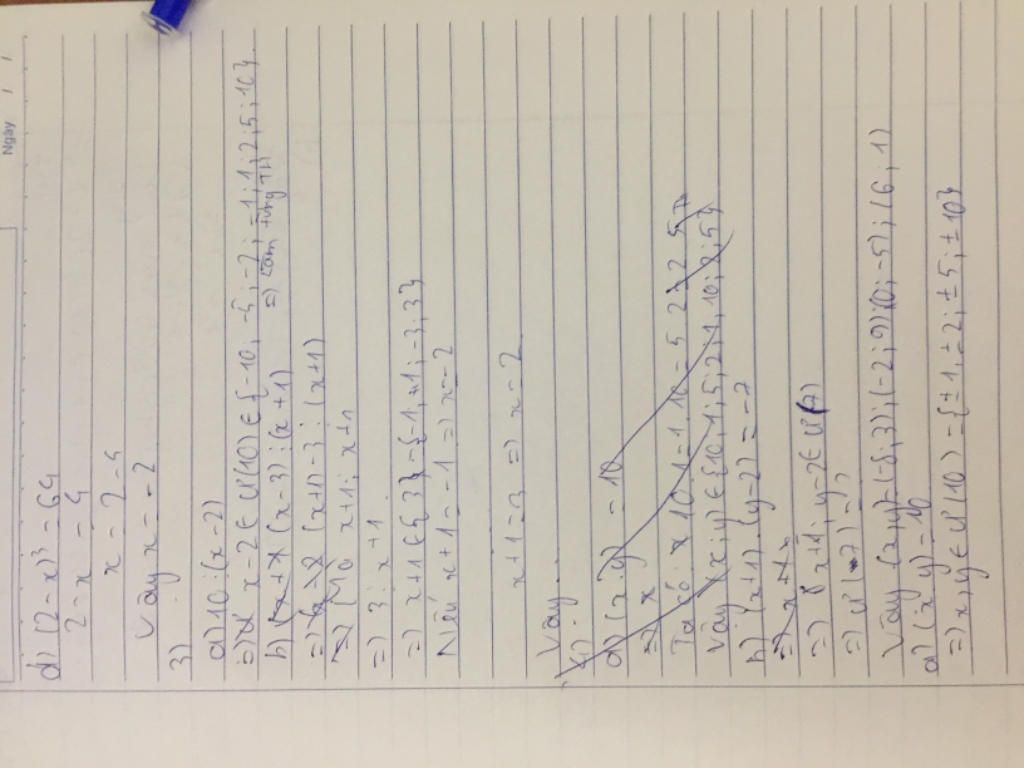 Ngày / /
d) (2 - x)³ = 64
2 - x = 4
x = 2 - 4
Vậy x = -2
3)
a) 10 ⋮ (x - 2)
=> x - 2 ∈ Ư(10) ∈ {-10; -5; -2; -1; 1; 2; 5; 10}
=> từng TH
b) (x - 3) ⋮ (x + 1)
=> (x + 1) - 3 ⋮ (x + 1)
x + 1 ⋮ x + 1
=> 3 ⋮ x + 1
=> x + 1 ∈ {-1; +1; -3; 3}
Nếu x + 1 = -1 => x = -2
x + 1 = 3 => x = 2
Vậy
a) (x.y) = 10
=> x
Ta có: x 10.1 = 1.10 = 5.2 = 2.5
Vậy (x; y) ∈ {10,1; 5,2; 1,10; 2,5}
b) (x + 1).(y - 2) = -7
=> x + 1; y - 2 ∈ Ư(7)
=> Ư(-7) =
Vậy (x; y) (-8; 3); (-2; 9) (0; -5); (6, 1)
a) (x.y) = 10
=> x, y ∈ Ư(10) = {±1, ±2; ±5; ±10}